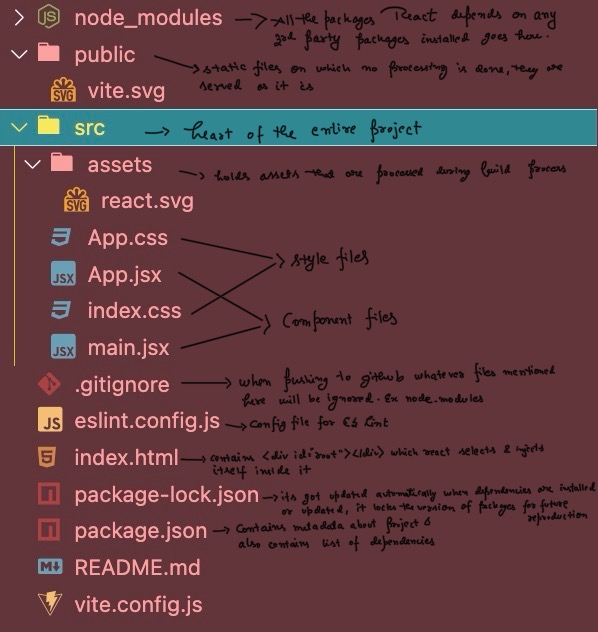 node_modules → All the packages React depends on any
3rd party packages installed goes here.
public → static files on which no processing is done, they are
served as it is
SVG vite.svg
src → heart of the entire project
assets → holds assets that are processed during build process
SVG react.svg
App.css
style files
JSX App.jsx
index.css
Component files
JSX main.jsx
.gitignore → when pushing to github whatever files mentioned
here will be ignored. Ex node_modules
JS eslint.config.js → Config file for ES Lint
index.html → contains <div id="root"></div> which react selects & injects
itself inside it
package-lock.json → its got updated automatically when dependencies are installed
or updated, it locks the version of packages for future
reproduction
package.json → Contains metadata about Project &
also contains list of dependencies
M↓ README.md
vite.config.js